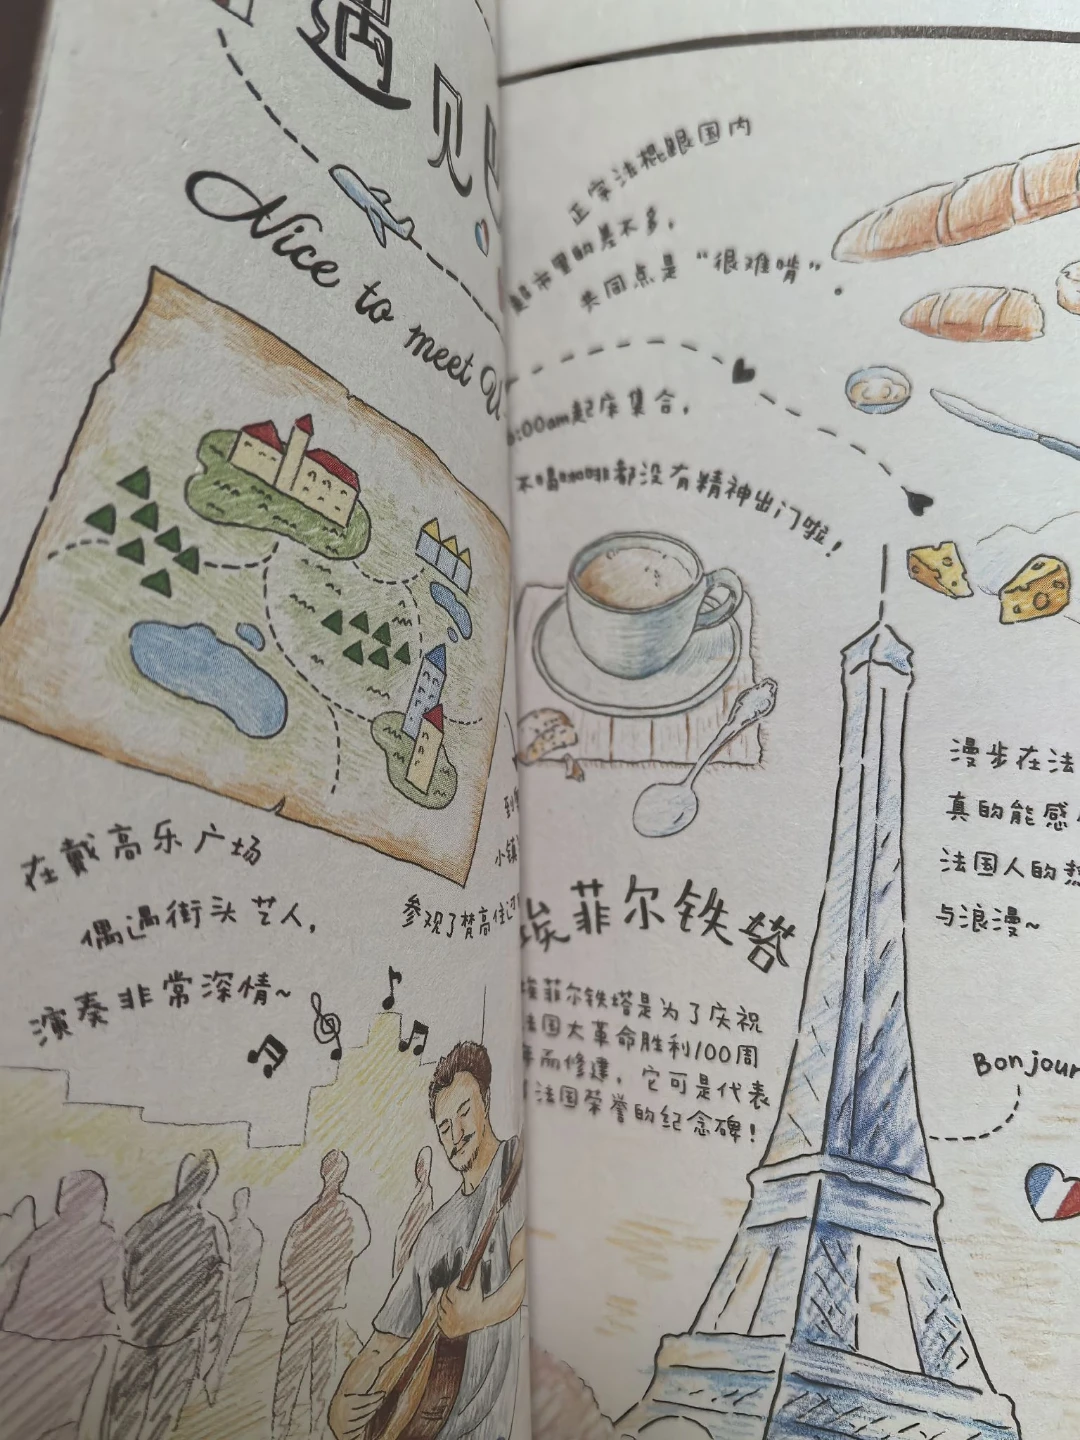 遇见
Nice to meet
在戴高乐广场
偶遇街头艺人，
演奏非常深情~
小镇
参观了梵高住过
正宗法棍跟国内
超市里的差不多，
共同点是“很难啃”。
6:00am起床集合，
不喝咖啡都没有精神出门啦！
埃菲尔铁塔
埃菲尔铁塔是为了庆祝
法国大革命胜利100周
年而修建，它可是代表
法国荣誉的纪念碑！
漫步在法
真的能感
法国人的
与浪漫~
Bonjour